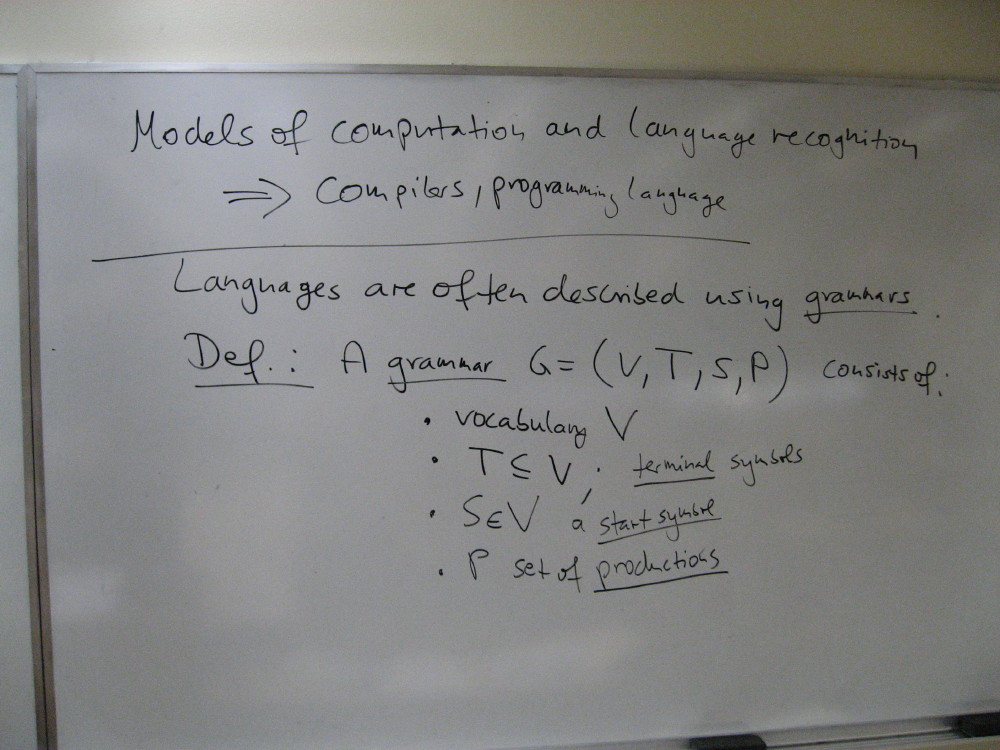 Models of computation and language recognition
⇒ Compilers, programming language
Languages are often described using grammars.
Def.: A grammar G = (V, T, S, P) consists of:
• vocabulary V
• T ⊆ V, terminal symbols
• S ∈ V a start symbol
• P set of productions